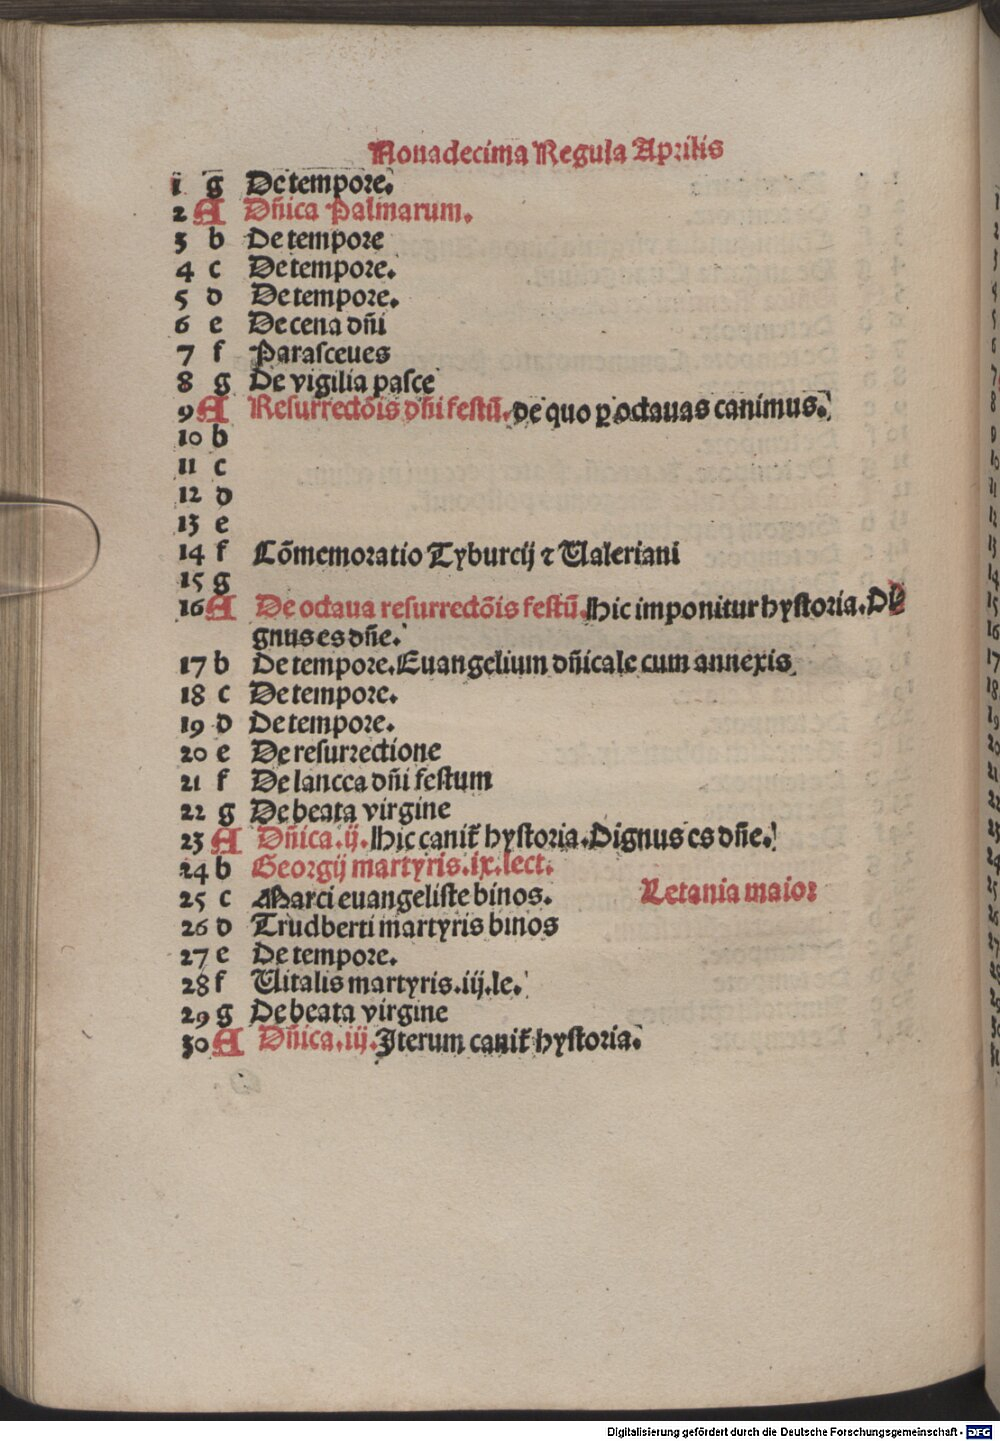 Nonadecima Regula Aprilis
1 g De tempore.
2 A Dñica Palmarum.
3 b De tempore
4 c De tempore.
5 d De tempore.
6 e De cena dñi
7 f Parasceues
8 g De vigilia pasce
9 A Resurrectõis dñi festũ. de quo ꝑ octauas canimus.
10 b
11 c
12 d
13 e
14 f Cõmemoratio Tyburcij ⁊ Ualeriani
15 g
16 A De octaua resurrectõis festũ. Hic imponitur hystoria. Di
gnus es dñe.
17 b De tempore. Euangelium dñicale cum annexis
18 c De tempore.
19 d De tempore.
20 e De resurrectione
21 f De lancea dñi festum
22 g De beata virgine
23 A Dñica .ij. Hic canit̃ hystoria. Dignus es dñe.
24 b Georgij martyris .ix. lect.
25 c Marci euangeliste binos. Letania maior
26 d Trudberti martyris binos
27 e De tempore.
28 f Uitalis martyris .iij. le.
29 g De beata virgine
30 A Dñica .iij. Iterum canit̃ hystoria.
Digitalisierung gefördert durch die Deutsche Forschungsgemeinschaft - DFG